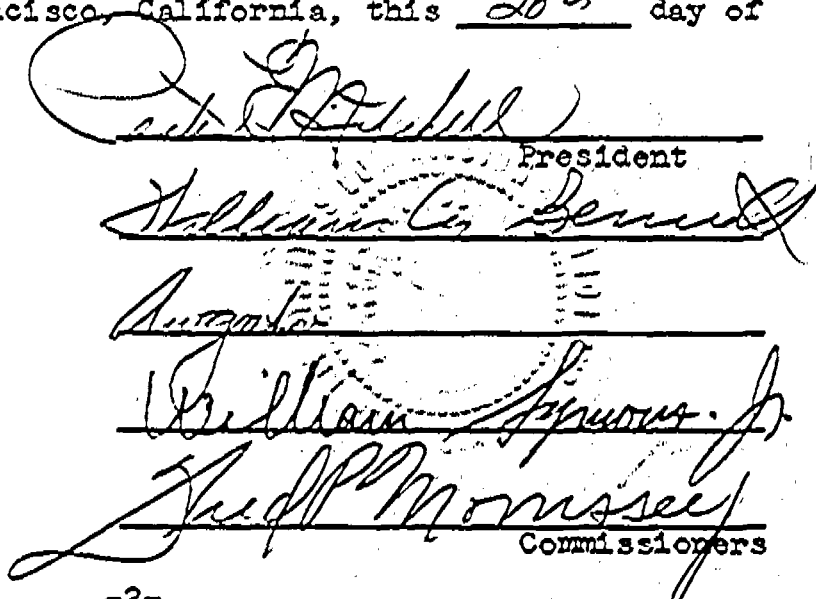 ncisco, California, this 20th day of
Mitchell
President
William A. Bennett
William Symons. Jr.
Fred P Morrissey
Commissioners